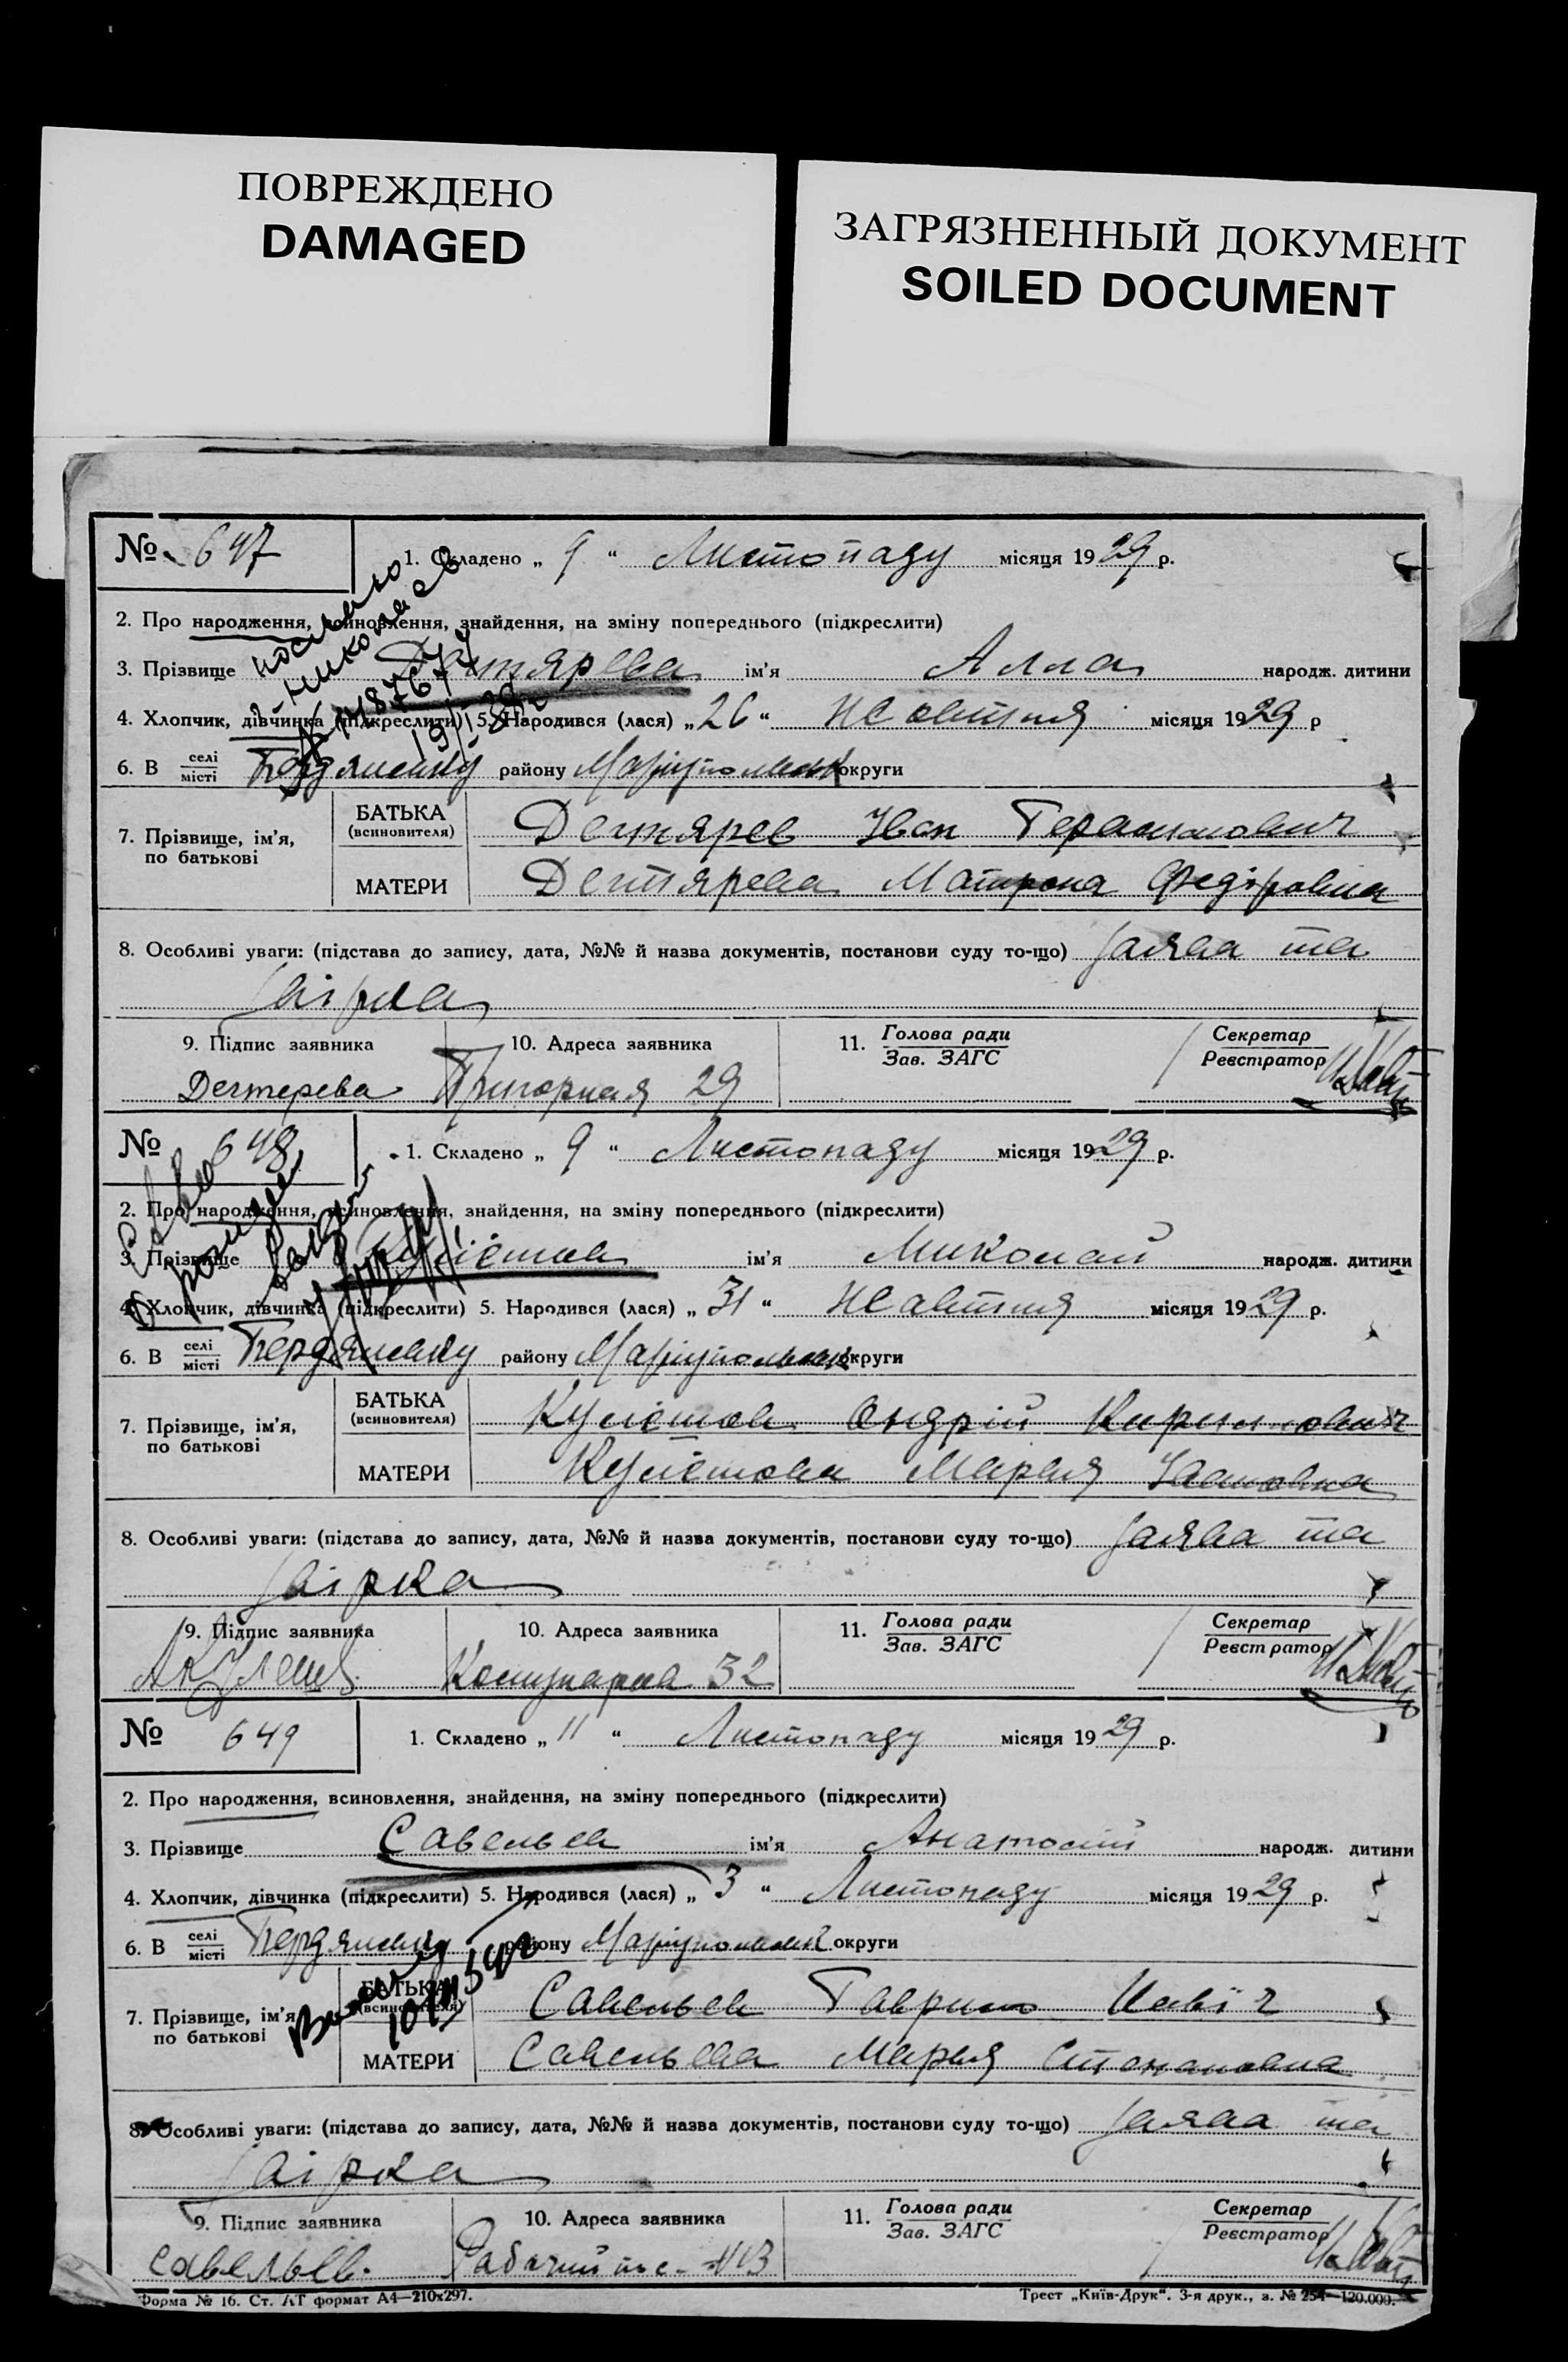 ПОВРЕЖДЕНО
DAMAGED
ЗАГРЯЗНЕННЫЙ ДОКУМЕНТ
SOILED DOCUMENT
№ 647
1. Складено „ 9 “ Листопаду місяця 1929 р.
2. Про народження, всиновлення, знайдення, на зміну попереднього (підкреслити)
3. Прізвище Дегтярева ім'я Алла народж. дитини
4. Хлопчик, дівчинка (підкреслити) 5. Народився (лася) „ 26 “ Жовтня місяця 1929 р
6. В селі місті Бердянську району Маріупольськ округи
7. Прізвище, ім'я, по батькові
БАТЬКА (всиновителя) Дегтярев Іван Герасимович
МАТЕРИ Дегтярева Матрона Федіровна
8. Особливі уваги: (підстава до запису, дата, №№ й назва документів, постанови суду то-що) Заява та
Звірка
9. Підпис заявника 10. Адреса заявника 11. Голова ради Зав. ЗАГС Секретар Реєстратор
Дегтерева Пригорная 29
№ 648
1. Складено „ 9 “ Листопаду місяця 1929 р.
2. Про народження, всиновлення, знайдення, на зміну попереднього (підкреслити)
3. Прізвище ім'я Миколай народж. дитини
4. Хлопчик, дівчинка (підкреслити) 5. Народився (лася) „ 31 “ Жовтня місяця 1929 р.
6. В селі місті Бердянську району Маріупольськ округи
7. Прізвище, ім'я, по батькові
БАТЬКА (всиновителя) Кулєшов Андрій Кирилович
МАТЕРИ Кулєшова Марья
8. Особливі уваги: (підстава до запису, дата, №№ й назва документів, постанови суду то-що) Заява та
Звірка
9. Підпис заявника 10. Адреса заявника 11. Голова ради Зав. ЗАГС Секретар Реєстратор
Комунарна 32
№ 649
1. Складено „ 11 “ Листопаду місяця 1929 р.
2. Про народження, всиновлення, знайдення, на зміну попереднього (підкреслити)
3. Прізвище Савельев ім'я Анатолій народж. дитини
4. Хлопчик, дівчинка (підкреслити) 5. Народився (лася) „ 3 “ Листопаду місяця 1929 р.
6. В селі місті Бердянську району Маріупольськ округи
7. Прізвище, ім'я, по батькові
БАТЬКА (всиновителя) Савельев Гаврило
МАТЕРИ Савельева Марья Степановна
8. Особливі уваги: (підстава до запису, дата, №№ й назва документів, постанови суду то-що) Заява та
Звірка
9. Підпис заявника 10. Адреса заявника 11. Голова ради Зав. ЗАГС Секретар Реєстратор
Савельев. Рабочий пос.
Форма № 16. Ст. АТ формат А4—210х297.
Трест „Київ-Друк“. 3-я друк., з. № 254—120.000.